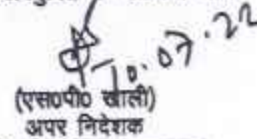 10.07.22
(एस०पी० खाली)
अपर निदेशक